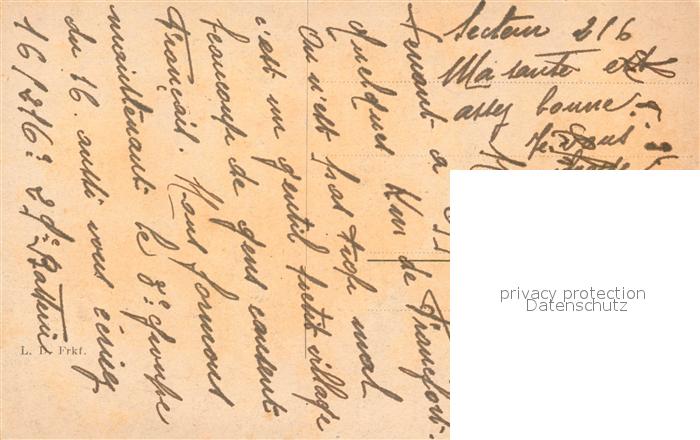 Secteur 216
Ma santé est
assez bonne.
Je vous
tenant à
quelques Km de Francfort.
On n'est pas trop mal
c'est un gentil petit village
beaucoup de gens causent
Français. Nous formons
maintenant le 3e groupe
du 16. aussi vous écrirez
16/216e 29e Batterie
L. D. Frkf.
privacy protection
Datenschutz